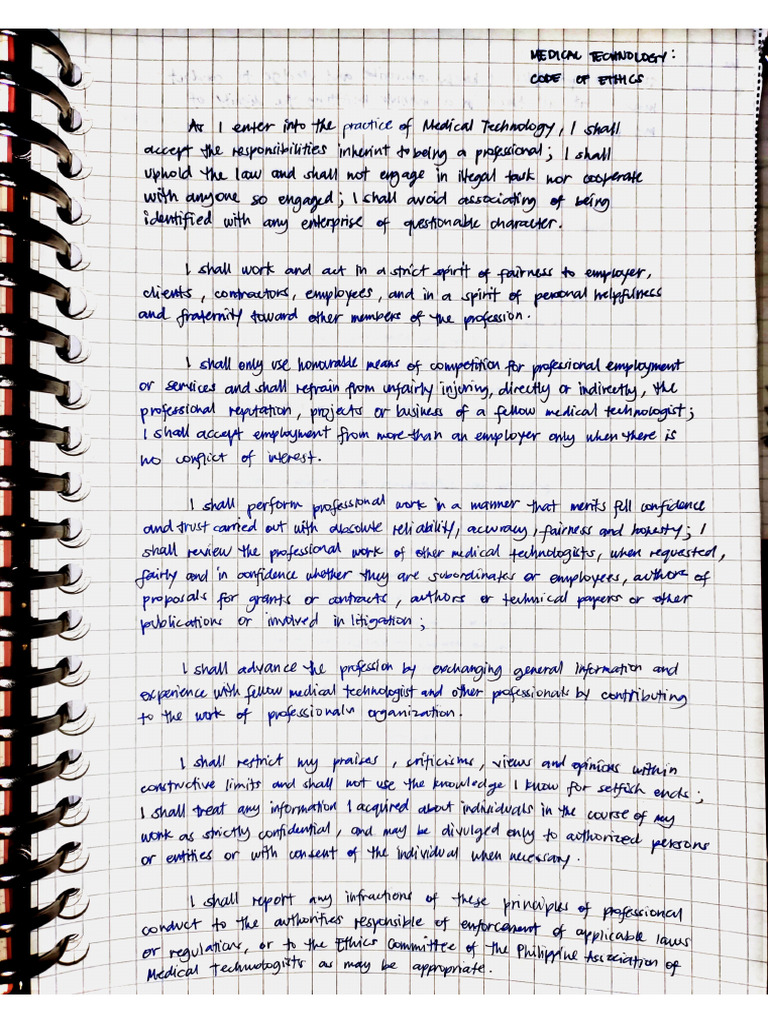 MEDICAL TECHNOLOGY:
CODE OF ETHICS
As I enter into the practice of Medical Technology, I shall
accept the responsibilities inherent to being a professional; I shall
uphold the law and shall not engage in illegal task nor cooperate
with anyone so engaged; I shall avoid associating of being
identified with any enterprise of questionable character.
I shall work and act in a strict spirit of fairness to employer,
clients, contractors, employees, and in a spirit of personal helpfulness
and fraternity toward other members of the profession.
I shall only use honourable means of competition for professional employment
or services and shall refrain from unfairly injuring, directly or indirectly, the
professional reputation, projects or business of a fellow medical technologist;
I shall accept employment from more than an employer only when there is
no conflict of interest.
I shall perform professional work in a manner that merits full confidence
and trust carried out with absolute reliability, accuracy, fairness and honesty; I
shall review the professional work of other medical technologists, when requested,
fairly and in confidence whether they are subordinates or employees, authors of
proposals for grants or contracts, authors or technical papers or other
publications or involved in litigation;
I shall advance the profession by exchanging general information and
experience with fellow medical technologist and other professionals by contributing
to the work of professional organization.
I shall restrict my praises, criticisms, views and opinions within
constructive limits and shall not use the knowledge I know for selfish ends;
I shall treat any information I acquired about individuals in the course of my
work as strictly confidential, and may be divulged only to authorized persons
or entities or with consent of the individual when necessary.
I shall report any infractions of these principles of professional
conduct to the authorities responsible of enforcement of applicable laws
or regulations, or to the Ethics Committee of the Philippine Association of
Medical Technologists as may be appropriate.